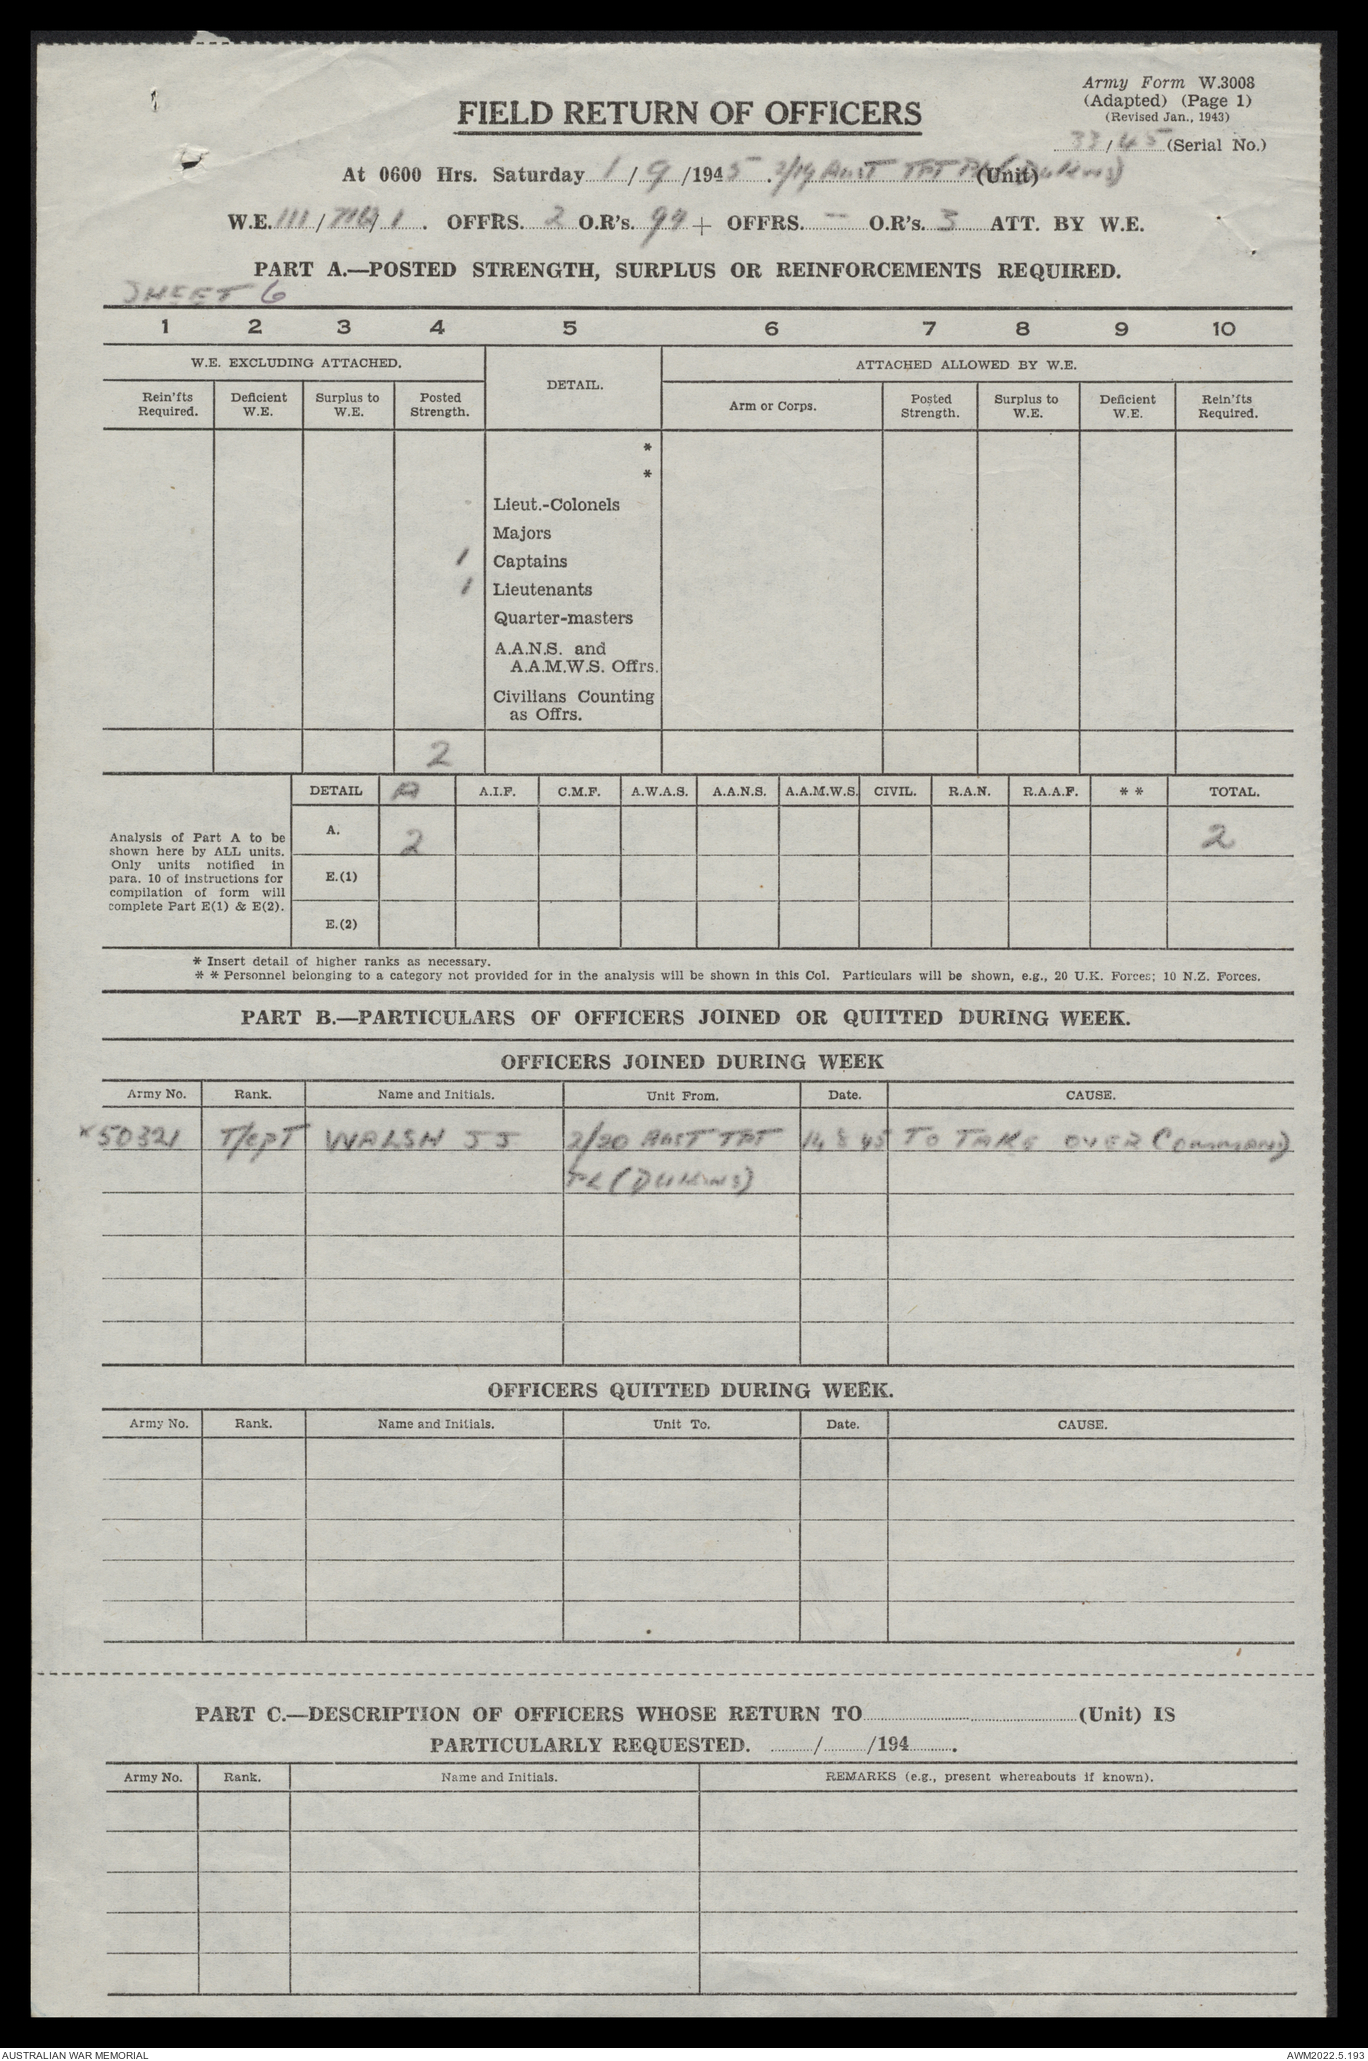 Army Form W.3008
(Adapted) (Page 1)
(Revised Jan., 1943)
33/45 (Serial No.)
FIELD RETURN OF OFFICERS
At 0600 Hrs. Saturday 1/9/1945. 2/19 Aust TPT PL (Dukws) (Unit)
W.E. 111/ /1. OFFRS. 2 O.R's. 94 + OFFRS. – O.R's. 3 ATT. BY W.E.
PART A.—POSTED STRENGTH, SURPLUS OR REINFORCEMENTS REQUIRED.
SHEET 6
1 2 3 4 5 6 7 8 9 10
W.E. EXCLUDING ATTACHED. DETAIL. ATTACHED ALLOWED BY W.E.
Rein'fts Required. Deficient W.E. Surplus to W.E. Posted Strength. Arm or Corps. Posted Strength. Surplus to W.E. Deficient W.E. Rein'fts Required.
*
*
Lieut.-Colonels
Majors
1 Captains
1 Lieutenants
Quarter-masters
A.A.N.S. and
A.A.M.W.S. Offrs.
Civilians Counting
as Offrs.
2
DETAIL A A.I.F. C.M.F. A.W.A.S. A.A.N.S. A.A.M.W.S. CIVIL. R.A.N. R.A.A.F. * * TOTAL.
Analysis of Part A to be
shown here by ALL units.
Only units notified in
para. 10 of instructions for
compilation of form will
complete Part E(1) & E(2).
A. 2 2
E.(1)
E.(2)
* Insert detail of higher ranks as necessary.
* * Personnel belonging to a category not provided for in the analysis will be shown in this Col. Particulars will be shown, e.g., 20 U.K. Forces; 10 N.Z. Forces.
PART B.—PARTICULARS OF OFFICERS JOINED OR QUITTED DURING WEEK.
OFFICERS JOINED DURING WEEK
Army No. Rank. Name and Initials. Unit From. Date. CAUSE.
X50321 T/CPT WALSH J J 2/20 AUST TPT 14 8 45 TO TAKE OVER COMMAND
PL (DUKWS)
OFFICERS QUITTED DURING WEEK.
Army No. Rank. Name and Initials. Unit To. Date. CAUSE.
PART C.—DESCRIPTION OF OFFICERS WHOSE RETURN TO (Unit) IS
PARTICULARLY REQUESTED. / /194 .
Army No. Rank. Name and Initials. REMARKS (e.g., present whereabouts if known).
AUSTRALIAN WAR MEMORIAL AWM2022.5.193